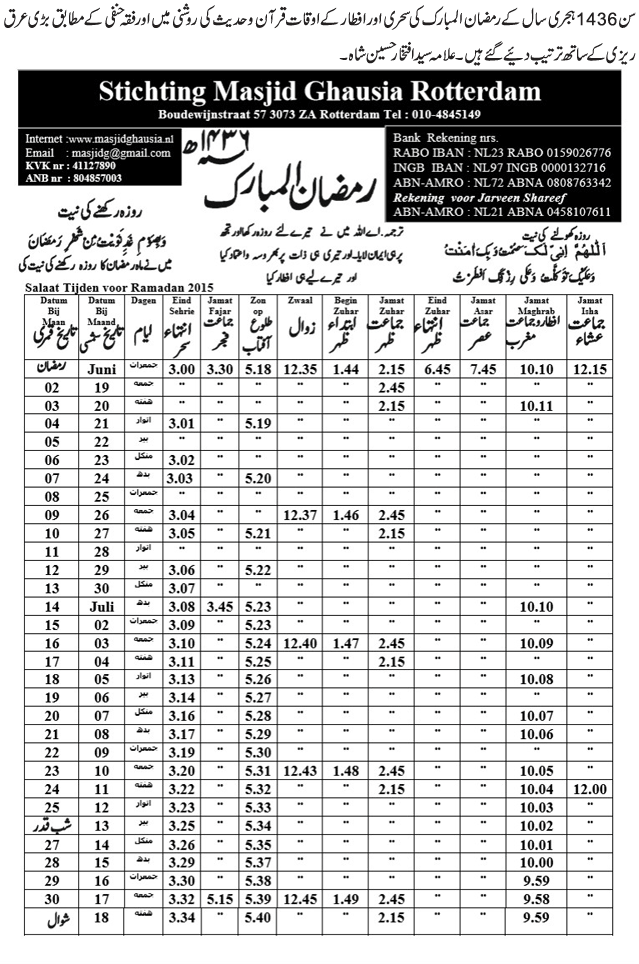 سن 1436 ہجری سال کے رمضان المبارک کی سحری اور افطار کے اوقات قرآن و حدیث کی روشنی میں اور فقہ حنفی کے مطابق بڑی عرق
ریزی کے ساتھ ترتیب دئیے گئے ہیں۔ علامہ سید افتخار حسین شاہ۔
Stichting Masjid Ghausia Rotterdam
Boudewijnstraat 57 3073 ZA Rotterdam Tel : 010-4845149
Internet :www.masjidghausia.nl
Email : masjidg@gmail.com
KVK nr : 41127890
ANB nr : 804857003
۱۴۳۶ھ
رمضان المبارک
Bank Rekening nrs.
RABO IBAN : NL23 RABO 0159026776
INGB IBAN : NL97 INGB 0000132716
ABN-AMRO : NL72 ABNA 0808763342
Rekening voor Jarveen Shareef
ABN-AMRO : NL21 ABNA 0458107611
روزہ رکھنے کی نیت
وَبِصَوْمِ غَدٍ نَوَيْتُ مِنْ شَهْرِ رَمَضَانَ
میں نے ماہ رمضان کا روزہ رکھنے کی نیت کی
ترجمہ۔ اے اللہ میں نے تیرے لئے روزہ رکھا اور تجھ
پر ہی ایمان لایا۔ اور تیری ہی ذات پر بھروسہ و اعتماد کیا
اور تیرے لیے ہی افطار کیا
روزہ کھولنے کی نیت
اَللّٰهُمَّ اِنِّی لَکَ صُمْتُ وَبِکَ اٰمَنْتُ
وَعَلَيْکَ تَوَکَّلْتُ وَعَلٰی رِزْقِکَ اَفْطَرْتُ
Salaat Tijden voor Ramadan 2015
Datum Bij Maan Datum Bij Maand Dagen Eind Sehrie Jamat Fajar Zon op Zwaal Begin Zuhar Jamat Zuhar Eind Zuhar Jamat Asar Jamat Maghrab Jamat Isha
تاریخ قمری تاریخ شمسی ایام انتہاء سحر جماعت فجر طلوع آفتاب زوال ابتداء ظہر جماعت ظہر انتہاء ظہر جماعت عصر افطار و جماعت مغرب جماعت عشاء
رمضان Juni جمعرات 3.00 3.30 5.18 12.35 1.44 2.15 6.45 7.45 10.10 12.15
02 19 جمعہ " " " " " 2.45 " " " "
03 20 ہفتہ " " " " " 2.15 " " 10.11 "
04 21 اتوار 3.01 " 5.19 " " " " " " "
05 22 پیر " " " " " " " " " "
06 23 منگل 3.02 " " " " " " " " "
07 24 بدھ 3.03 " 5.20 " " " " " " "
08 25 جمعرات " " " " " " " " " "
09 26 جمعہ 3.04 " " 12.37 1.46 2.45 " " " "
10 27 ہفتہ 3.05 " 5.21 " " 2.15 " " " "
11 28 اتوار " " " " " " " " " "
12 29 پیر 3.06 " 5.22 " " " " " " "
13 30 منگل 3.07 " " " " " " " " "
14 Juli بدھ 3.08 3.45 5.23 " " " " " 10.10 "
15 02 جمعرات 3.09 " 5.23 " " " " " " "
16 03 جمعہ 3.10 " 5.24 12.40 1.47 2.45 " " 10.09 "
17 04 ہفتہ 3.11 " 5.25 " " 2.15 " " " "
18 05 اتوار 3.13 " 5.26 " " " " " 10.08 "
19 06 پیر 3.14 " 5.27 " " " " " " "
20 07 منگل 3.16 " 5.28 " " " " " 10.07 "
21 08 بدھ 3.17 " 5.29 " " " " " 10.06 "
22 09 جمعرات 3.19 " 5.30 " " " " " " "
23 10 جمعہ 3.20 " 5.31 12.43 1.48 2.45 " " 10.05 "
24 11 ہفتہ 3.22 " 5.32 " " 2.15 " " 10.04 12.00
25 12 اتوار 3.23 " 5.33 " " " " " 10.03 "
شب قدر 13 پیر 3.25 " 5.34 " " " " " 10.02 "
27 14 منگل 3.26 " 5.35 " " " " " 10.01 "
28 15 بدھ 3.29 " 5.37 " " " " " 10.00 "
29 16 جمعرات 3.30 " 5.38 " " " " " 9.59 "
30 17 جمعہ 3.32 5.15 5.39 12.45 1.49 2.45 " " 9.58 "
شوال 18 ہفتہ 3.34 " 5.40 " " 2.15 " " 9.59 "